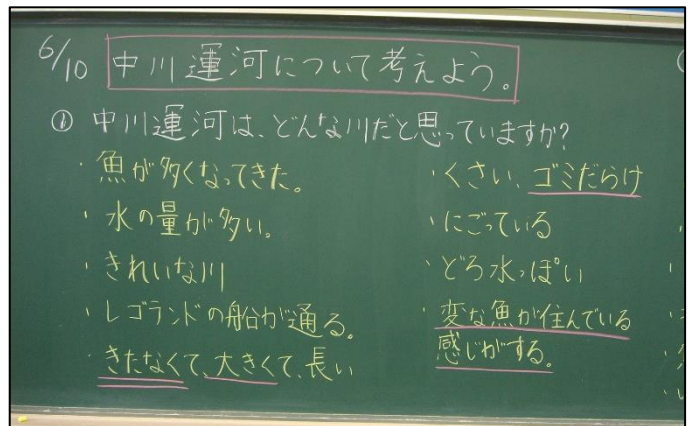 6/10 中川運河について考えよう。
① 中川運河は、どんな川だと思っていますか?
・魚が多くなってきた。
・水の量が多い。
・きれいな川
・レゴランドの船が通る。
・きたなくて、大きくて、長い
・くさい、ゴミだらけ
・にごっている
・どろ水っぽい
・変な魚が住んでいる
感じがする。